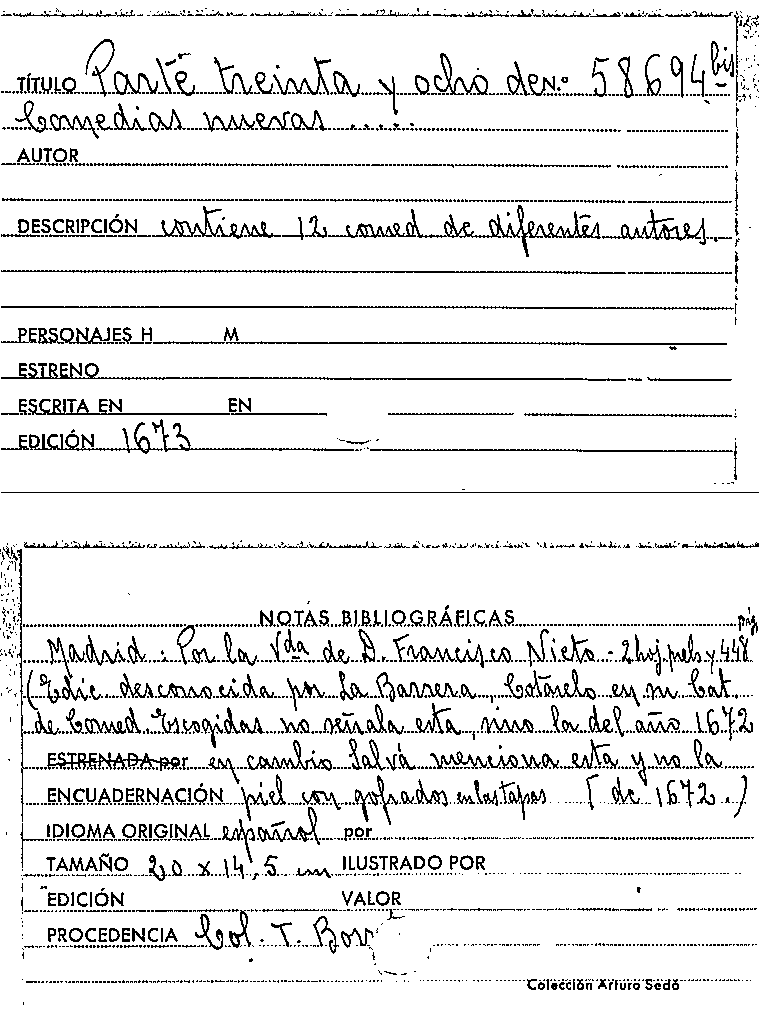 TÍTULO Parte treinta y ocho de N.º 58694 bis
Comedias nuevas .....
AUTOR
DESCRIPCIÓN contiene 12 comed. de diferentes autores.
PERSONAJES H M
ESTRENO
ESCRITA EN EN
EDICIÓN 1673
NOTAS BIBLIOGRÁFICAS
Madrid: Por la Vda de D. Francisco Nieto - 2 hoj. prels y 448 pág
(Edic. desconocida por La Barrera, Cotarelo en su Cat.
de Comed. Escogidas no señala esta, sino la del año 1672
ESTRENADA por en cambio Salvá menciona esta y no la
ENCUADERNACIÓN piel con gofrados en las tapas [de 1672.)
IDIOMA ORIGINAL español por
TAMAÑO 20 x 14,5 cm ILUSTRADO POR
EDICIÓN VALOR
PROCEDENCIA Col. T. Borr
Colección Arturo Sedó